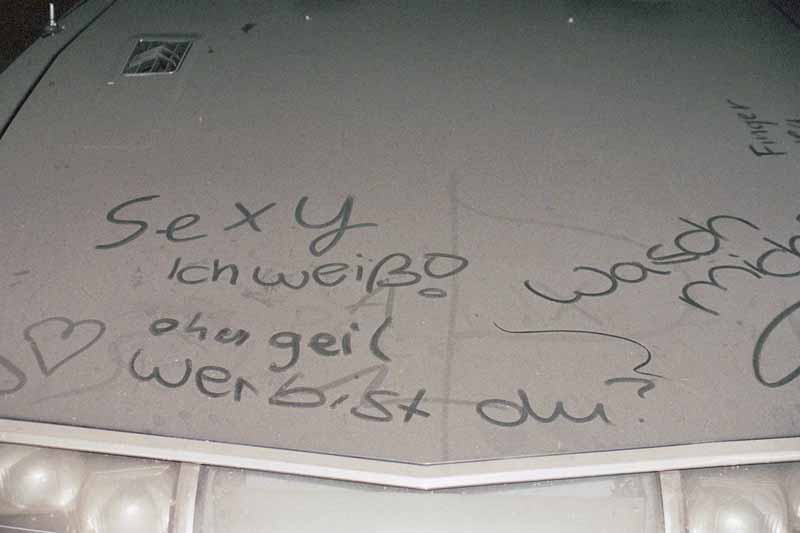 Sexy
Ich weiß!
geil
wer bist du?
wasch
mich
Finger